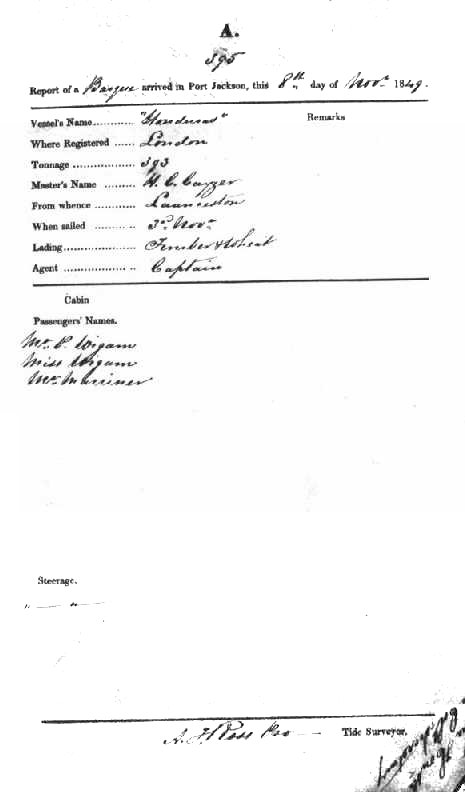 A.
395
Report of a Barque arrived in Port Jackson, this 8th day of Novr 1849.
Vessel's Name............ "Honduras" Remarks
Where Registered ...... London
Tonnage .................. 393
Master's Name ......... H. C.
From whence ............ Launceston
When sailed ............ 3rd Novr
Lading..................... Timber & Wheat
Agent ..................... Captain
Cabin
Passengers' Names.
Mr. P. Wigam
Miss Wigam
Mr. Marriner
Steerage.
" — " —
A. H. Ross Tide Surveyor.